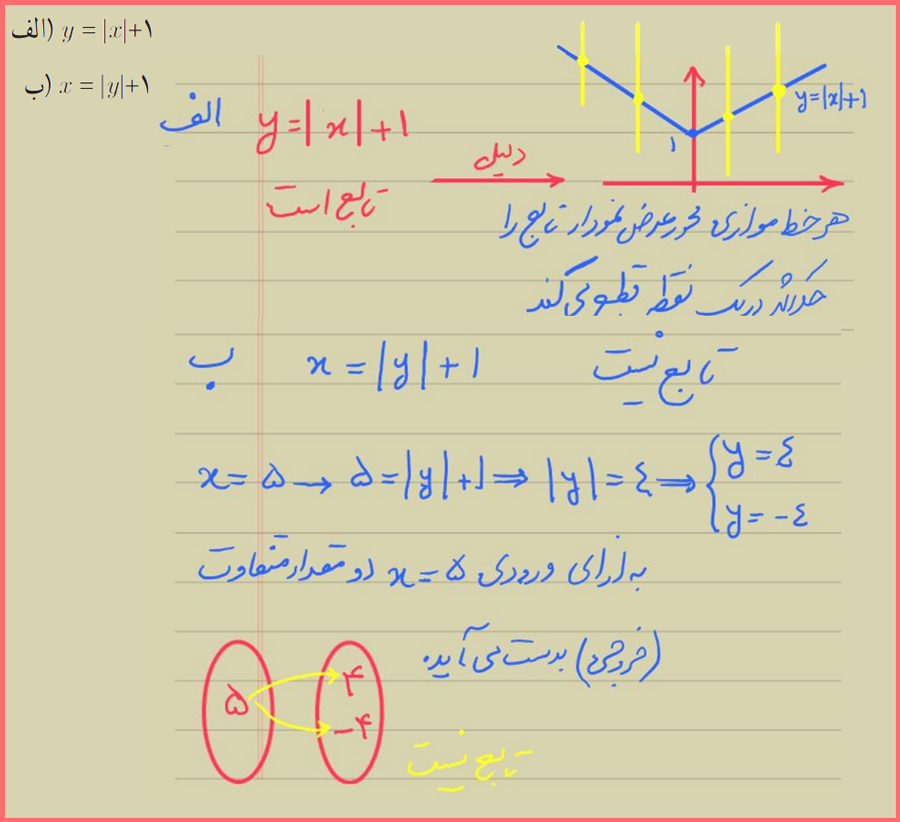 الف) y = |x|+۱
ب) x = |y|+۱
الف y=|x|+1
تابع است
دلیل
y=|x|+1
۱
هر خط موازی محور عرض نمودار تابع را
حداکثر در یک نقطه قطع می‌کند
ب x = |y|+1 تابع نیست
x=۵ → ۵=|y|+1 ⇒ |y|=٤ ⇒ { y=٤
y=-٤
به ازای ورودی x=۵ دو مقدار متفاوت
(خروجی) بدست می‌آید.
۵ ۴
-۴
تابع نیست